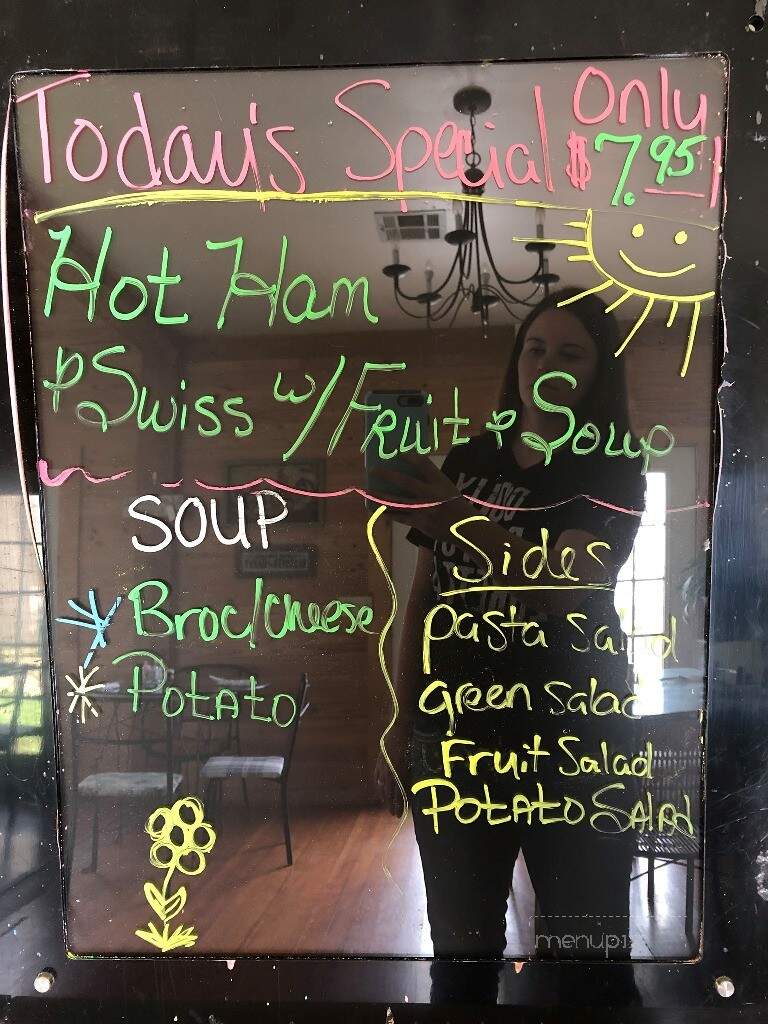 Today's Special Only
$7.95
Hot Ham
& Swiss w/ Fruit & Soup
SOUP
Broc/cheese
Potato
Sides
pasta salad
green salad
Fruit Salad
Potato Salad
menupix